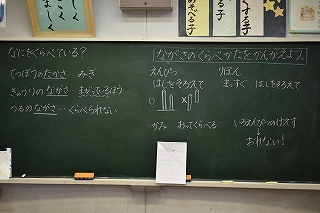 そべる子
くする子
なにをくらべている？
てつぼうのたかさ みぎ
きゅうりのながさ…まがっているほう
つるのながさ…くらべられない
ながさのくらべかたをかんがえよう
えんぴつ
はしをそろえて
○ ×
りぼん
まっすぐ はしをそろえて
かみ おってくらべる
いろえんぴつのけえす
おれない！